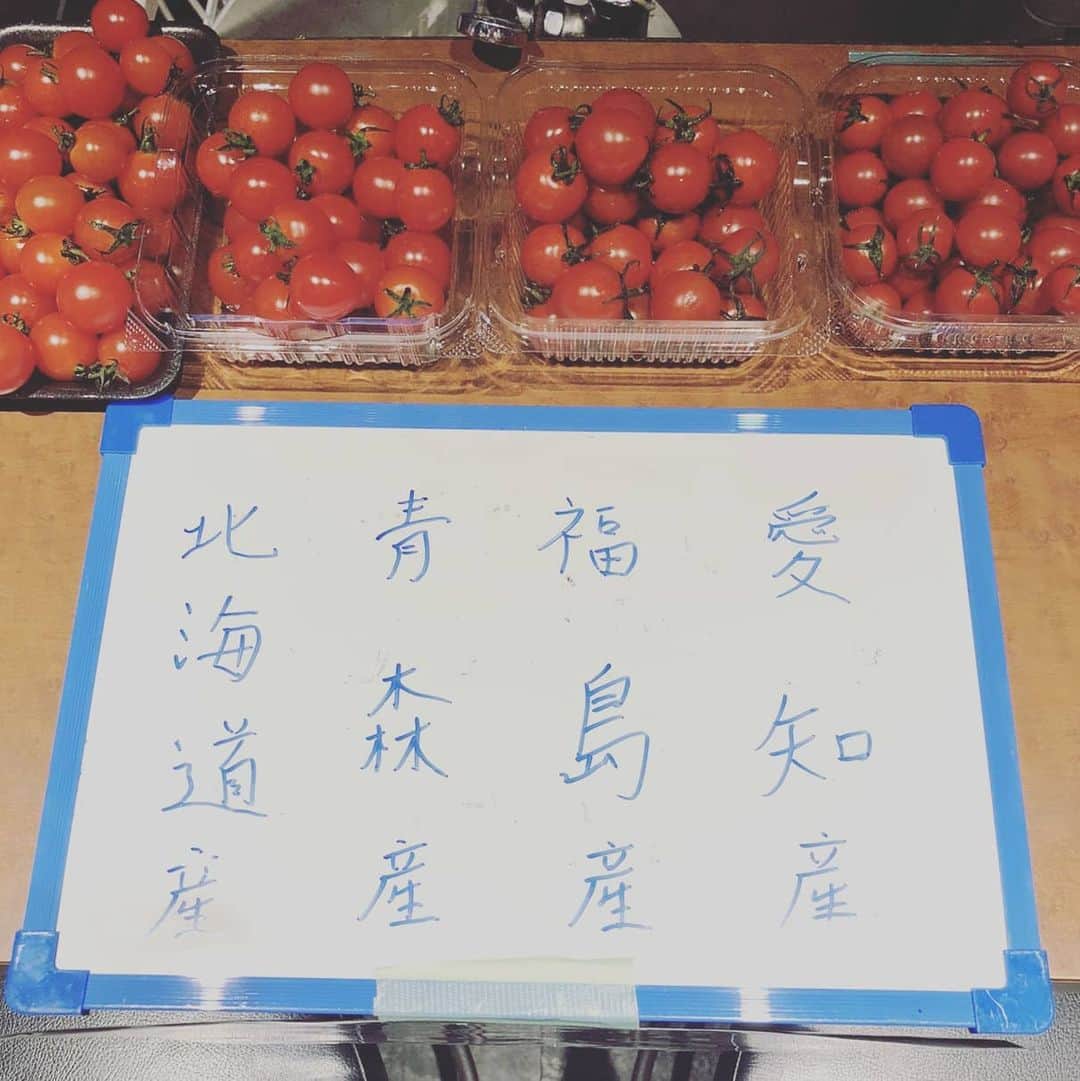 北海道産
青森産
福島産
愛知産